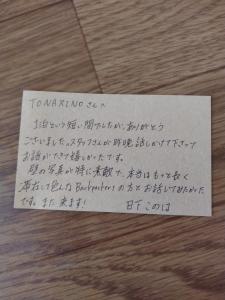 TONARINOさんへ
1泊という短い間でしたが、ありがとう
ございました。スタッフさんが昨晩話しかけて下さって
お話ができて嬉しかったです。
壁の写真が特に素敵で、本当はもっと長く
滞在して色んなBackpackersの方とお話してみたかった
です。また来ます!